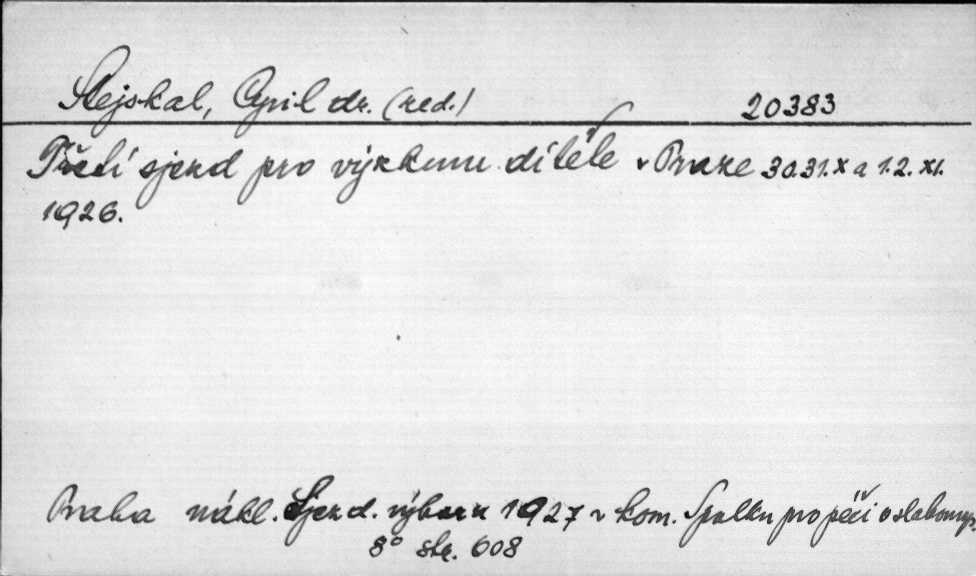 Stejskal, Cyril dr. (red.) 20383
Třetí sjezd pro výzkum dítěte v Praze 30.31.X a 1.2. XI.
1926.
Praha nákl. Sjezd. výboru 1927 v kom. Spolku pro péči o slabomys.
8° str. 608